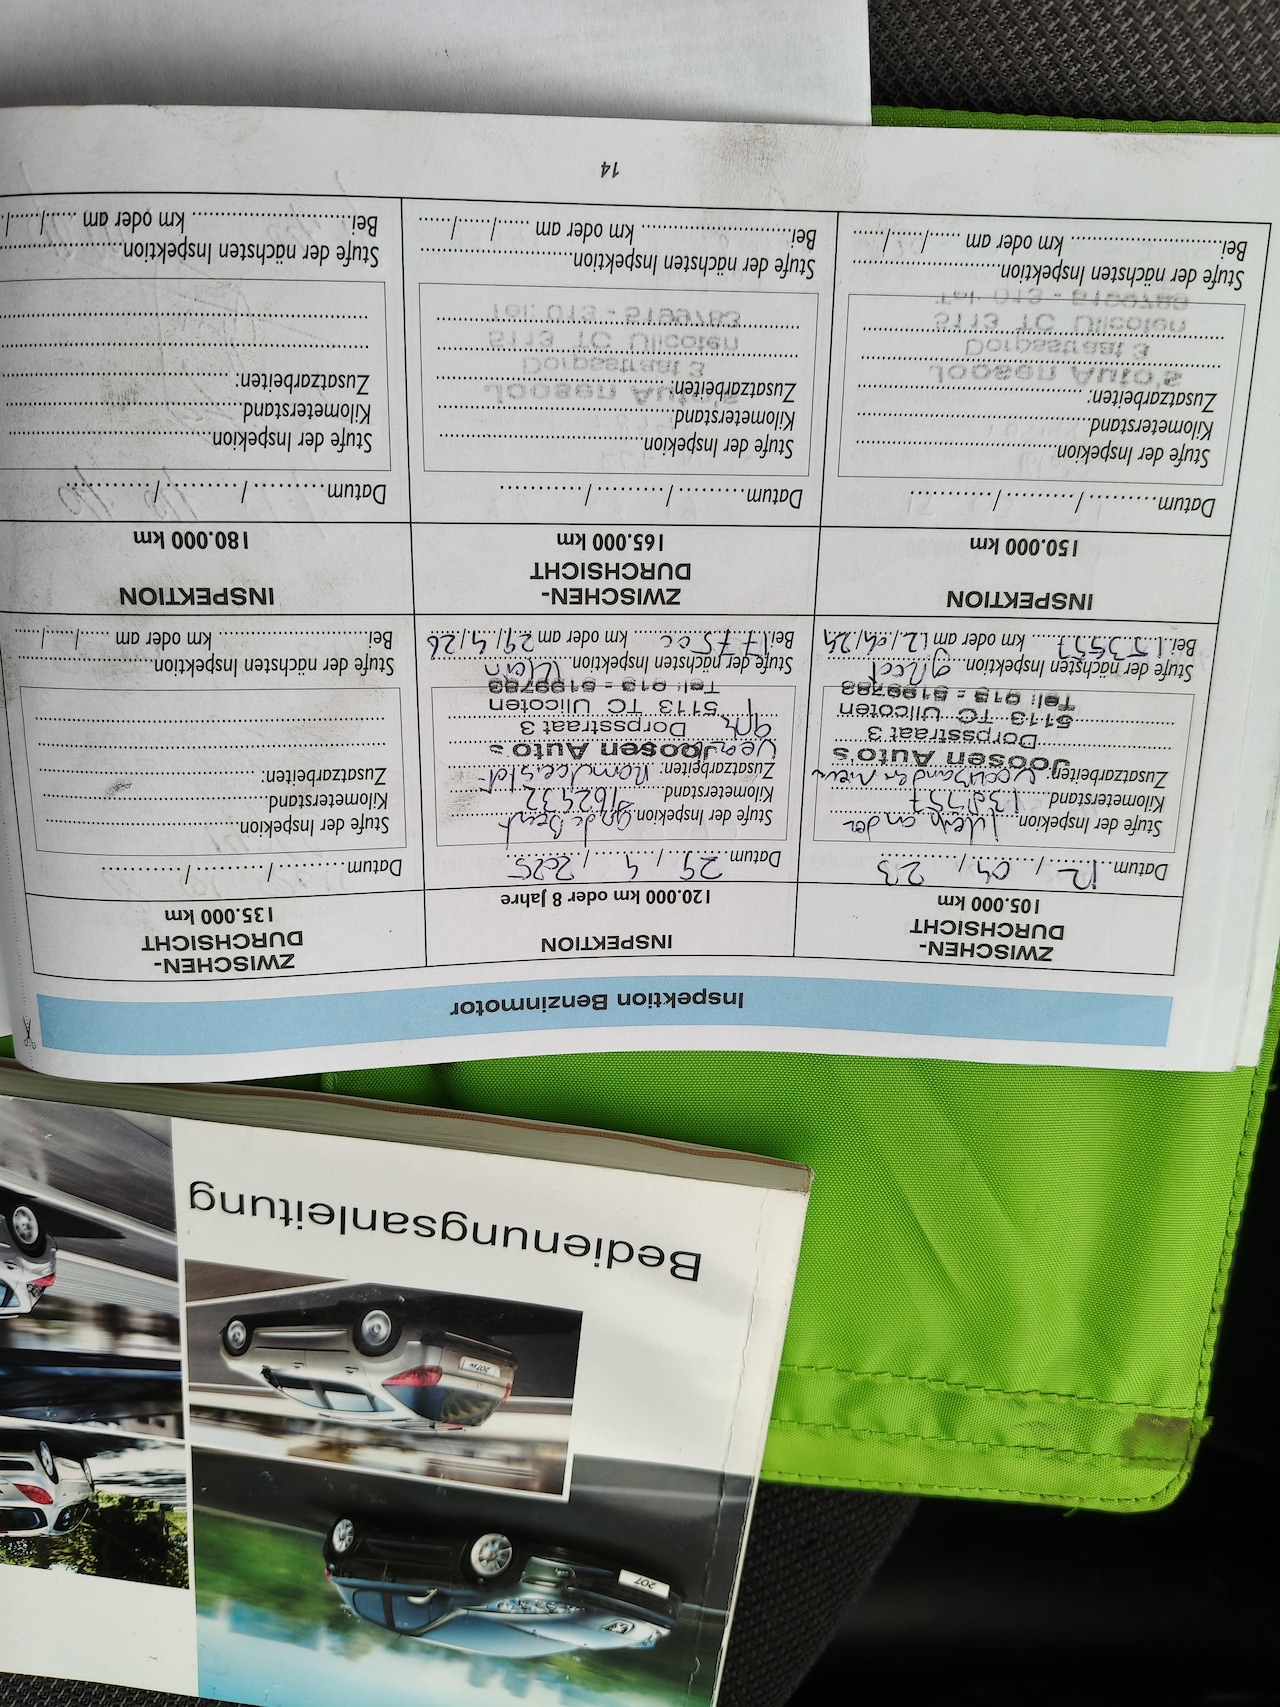 207
207
Bedienungsanleitung
Inspektion Benzinmotor
ZWISCHEN-
DURCHSICHT
105.000 km
Datum 12 / 04 / 23
Stufe der Inspekion
Kilometerstand
Zusatzarbeiten: Voorbanden nieuw
Joosen Auto's
Dorpsstraat 3
5113 TC Ulicoten
Tel: 013 - 5199783
Stufe der nächsten Inspektion groot
Bei 153757 km oder am 12/04/24
INSPEKTION
120.000 km oder 8 Jahre
Datum 29 / 4 / 2025
Stufe der Inspekion grote Beurt
Kilometerstand 162432
Zusatzarbeiten: Remvloeistof
Joosen Auto's
Dorpsstraat 3
5113 TC Ulicoten
Tel: 013 - 5199783
Stufe der nächsten Inspektion klein
Bei 177500 km oder am 29/4/26
ZWISCHEN-
DURCHSICHT
135.000 km
Datum / /
Stufe der Inspekion
Kilometerstand
Zusatzarbeiten:
Stufe der nächsten Inspektion
Bei km oder am / /
INSPEKTION
150.000 km
Datum / /
Stufe der Inspekion
Kilometerstand
Zusatzarbeiten:
Stufe der nächsten Inspektion
Bei km oder am / /
ZWISCHEN-
DURCHSICHT
165.000 km
Datum / /
Stufe der Inspekion
Kilometerstand
Zusatzarbeiten:
Stufe der nächsten Inspektion
Bei km oder am / /
INSPEKTION
180.000 km
Datum / /
Stufe der Inspekion
Kilometerstand
Zusatzarbeiten:
Stufe der nächsten Inspektion
Bei km oder am / /
14